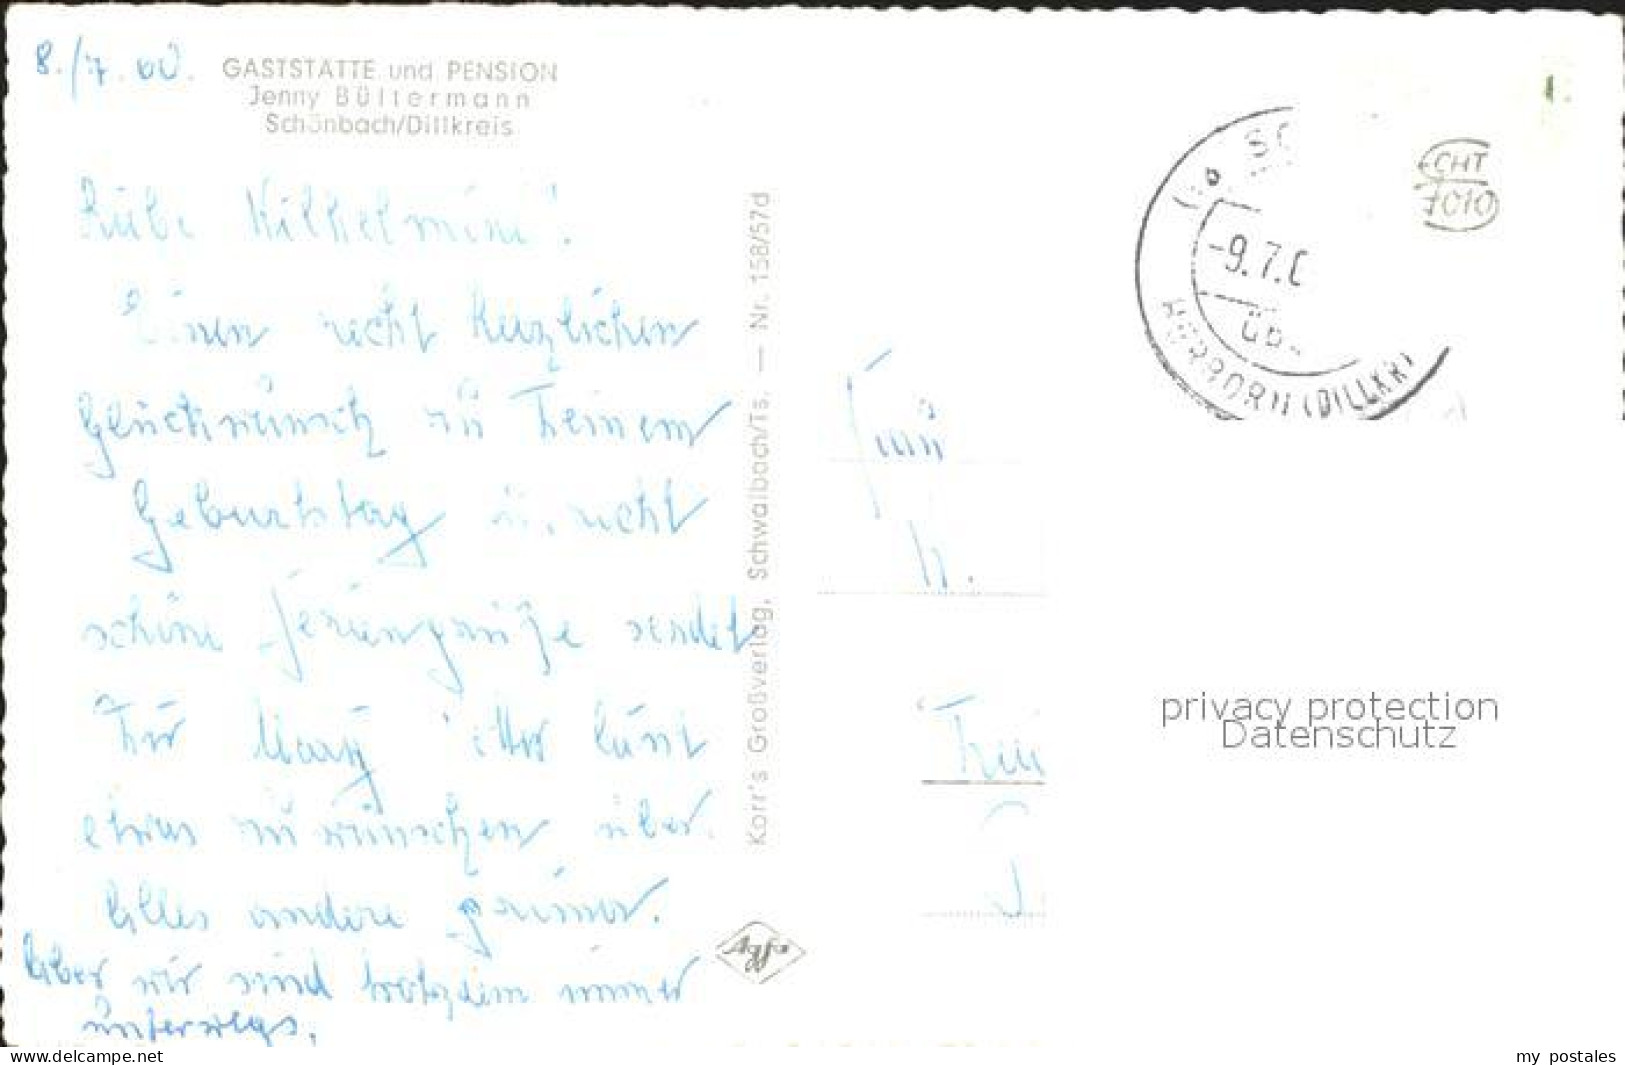 8./7.60.
GASTSTÄTTE und PENSION
Jenny Bültermann
Schönbach/Dillkreis
Liebe Wilhelmine!
Einen recht herzlichen
Glückwunsch zu Deinem
Geburtstag u. recht
schöne Feriengrüße sendet
Dir Mary
etwas zu wünschen über.
Alles andere prima.
Aber wir sind trotzdem immer
unterwegs.
Korr's Großverlag, Schwalbach/Ts. — Nr. 158/57d
Agfa
-9.7.
HERBORN (DILLKR)
ECHT
1010
privacy protection
Datenschutz
www.delcampe.net
my postales